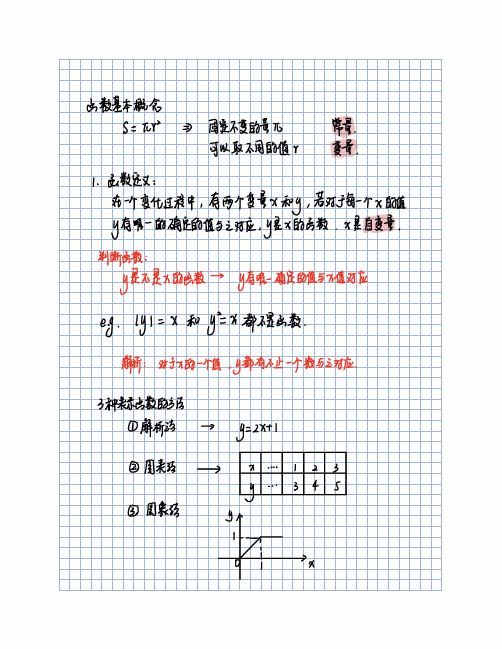 函数基本概念
S = πr² ⇒ 固定不变的量π 常量.
可以取不同的值r 变量.
1. 函数定义:
在一个变化过程中, 有两个变量x和y, 若对于每一个x的值
y有唯一的确定的值与之对应, y是x的函数 x是自变量.
判断函数:
y是不是x的函数 → y有唯一确定的值与x值对应
e.g. |y| = x 和 y² = x 都不是函数.
解析: 对于x的一个值 y都有不止一个数与之对应.
3种表示函数的方法
① 解析法 → y=2x+1
② 图表法 → x ... 1 2 3
y ... 3 4 5
③ 图象法
y
1
0 1 x